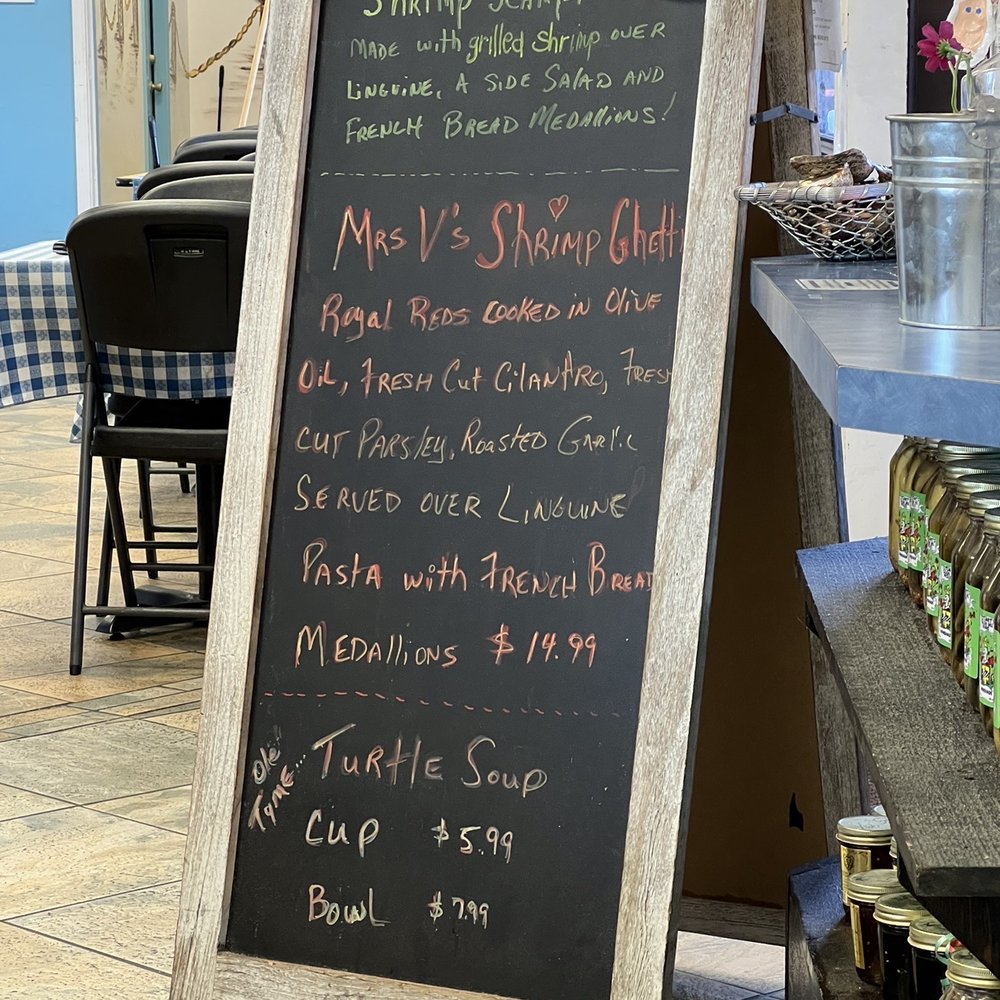 Shrimp Scampi
MADE with grilled shrimp OVER
LINGUINE, A SIDE SALAD AND
FRENCH BREAD MEDALLIONS!
MRS V's SHRIMP GHETTI
Royal REDS COOKED IN Olive
OIL, FRESH CUT CILANTRO, FRESH
CUT PARSLEY, ROASTED GARLIC
SERVED OVER LINGUINE
PASTA with FRENCH BREAD
MEDALLIONS $14.99
Ole'
Tyme...
TURTLE SOUP
CUP $5.99
BOWL $7.99